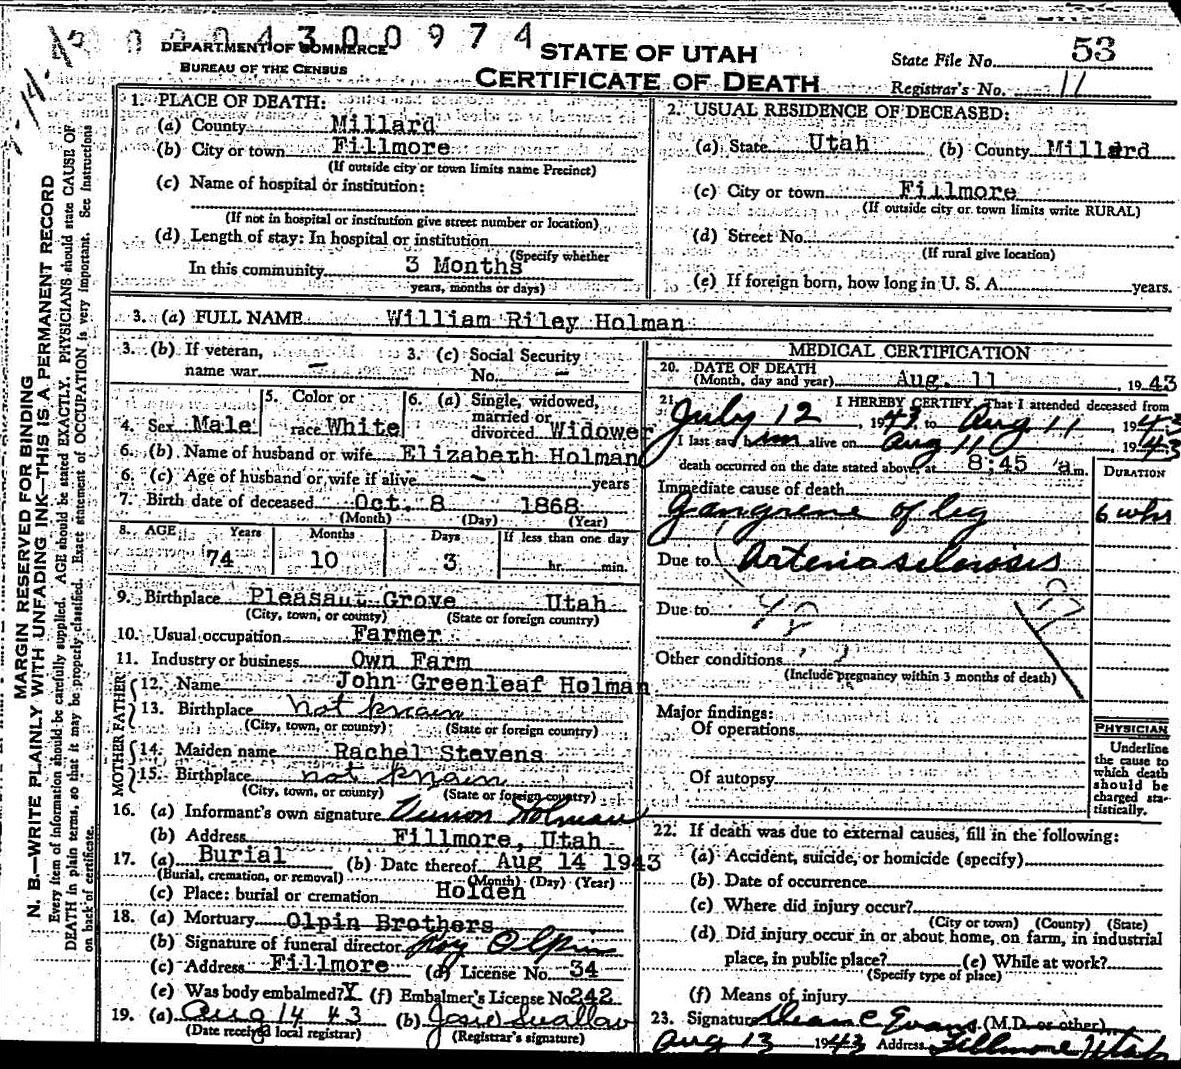 0004300974
DEPARTMENT OF COMMERCE
BUREAU OF THE CENSUS
STATE OF UTAH
CERTIFICATE OF DEATH
State File No. 53
Registrar's No. 11
MARGIN RESERVED FOR BINDING
N. B.—WRITE PLAINLY WITH UNFADING INK—THIS IS A PERMANENT RECORD
Every item of information should be carefully supplied. AGE should be stated EXACTLY. PHYSICIANS should state CAUSE OF
DEATH in plain terms, so that it may be properly classified. Exact statement of OCCUPATION is very important. See Instructions
on back of certificate.
1. PLACE OF DEATH:
(a) County Millard
(b) City or town Fillmore
(If outside city or town limits name Precinct)
(c) Name of hospital or institution:
(If not in hospital or institution give street number or location)
(d) Length of stay: In hospital or institution
(Specify whether
In this community 3 Months
years, months or days)
2. USUAL RESIDENCE OF DECEASED:
(a) State Utah (b) County Millard
(c) City or town Fillmore
(If outside city or town limits write RURAL)
(d) Street No.
(If rural give location)
(e) If foreign born, how long in U. S. A. years.
3. (a) FULL NAME William Riley Holman
3. (b) If veteran, name war —
3. (c) Social Security No. —
4. Sex Male
5. Color or race White
6. (a) Single, widowed, married or divorced Widower
6. (b) Name of husband or wife Elizabeth Holman
6. (c) Age of husband or wife if alive — years
7. Birth date of deceased Oct. 8 1868
(Month) (Day) (Year)
8. AGE Years Months Days If less than one day
74 10 3 hr. min.
9. Birthplace Pleasant Grove Utah
(City, town, or county) (State or foreign country)
10. Usual occupation Farmer
11. Industry or business Own Farm
FATHER
12. Name John Greenleaf Holman
13. Birthplace not knain
(City, town, or county) (State or foreign country)
MOTHER
14. Maiden name Rachel Stevens
15. Birthplace not knain
(City, town, or county) (State or foreign country)
16. (a) Informant's own signature Vernon Holman
(b) Address Fillmore, Utah
17. (a) Burial (b) Date thereof Aug 14 1943
(Burial, cremation, or removal) (Month) (Day) (Year)
(c) Place: burial or cremation Holden
18. (a) Mortuary Olpin Brothers
(b) Signature of funeral director Roy Olpin
(c) Address Fillmore (d) License No. 34
(e) Was body embalmed? Y (f) Embalmer's License No 242
19. (a) Aug 14 43 (b) Josie Swallow
(Date received local registrar) (Registrar's signature)
MEDICAL CERTIFICATION
20. DATE OF DEATH
(Month, day and year) Aug. 11, 1943
21. I HEREBY CERTIFY, That I attended deceased from
July 12, 1943, to Aug 11, 1943
I last saw him alive on Aug 11, 1943
death occurred on the date stated above at 8:45 a m.
DURATION
Immediate cause of death
Gangrene of leg 6 wks
Due to Arteriosclerosis
Due to
Other conditions
(Include pregnancy within 3 months of death)
Major findings:
Of operations
Of autopsy
PHYSICIAN
Underline
the cause to
which death
should be
charged sta-
tistically.
22. If death was due to external causes, fill in the following:
(a) Accident, suicide, or homicide (specify)
(b) Date of occurrence
(c) Where did injury occur?
(City or town) (County) (State)
(d) Did injury occur in or about home, on farm, in industrial
place, in public place? (e) While at work?
(Specify type of place)
(f) Means of injury
23. Signature Dean C Evans (M.D. or other)
Aug 13 1943 Address Fillmore Utah